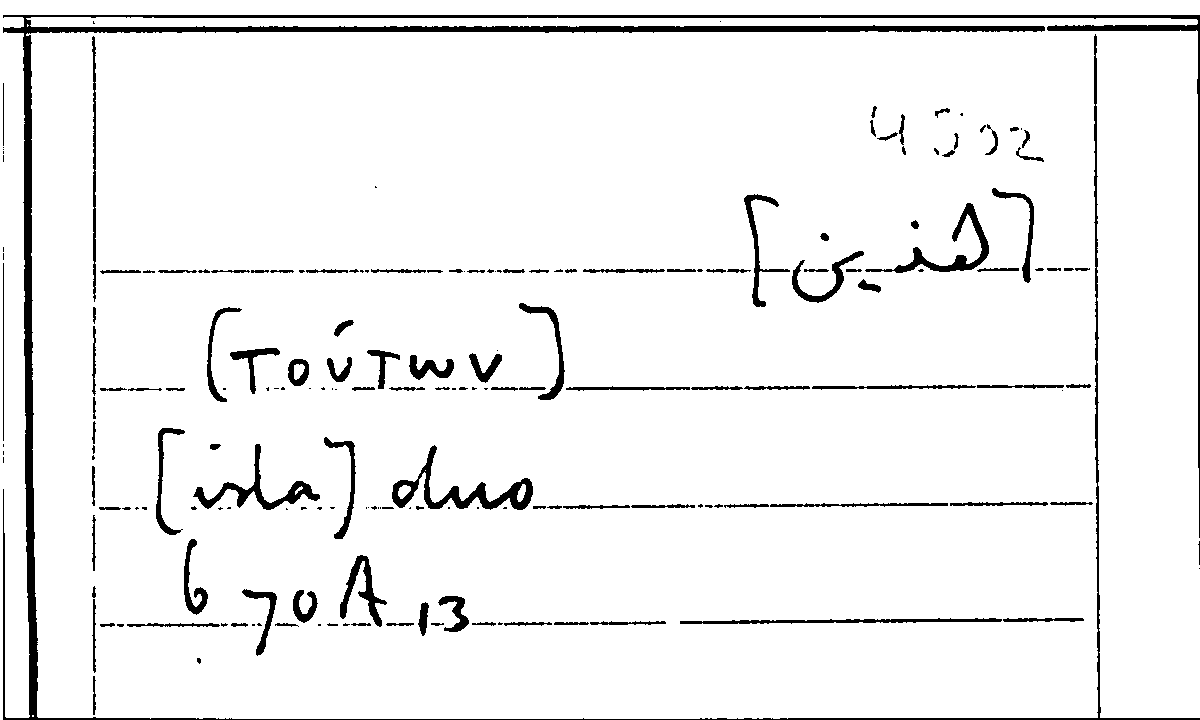 4502
[هذين]
[τούτων]
[ista] duo
670A13